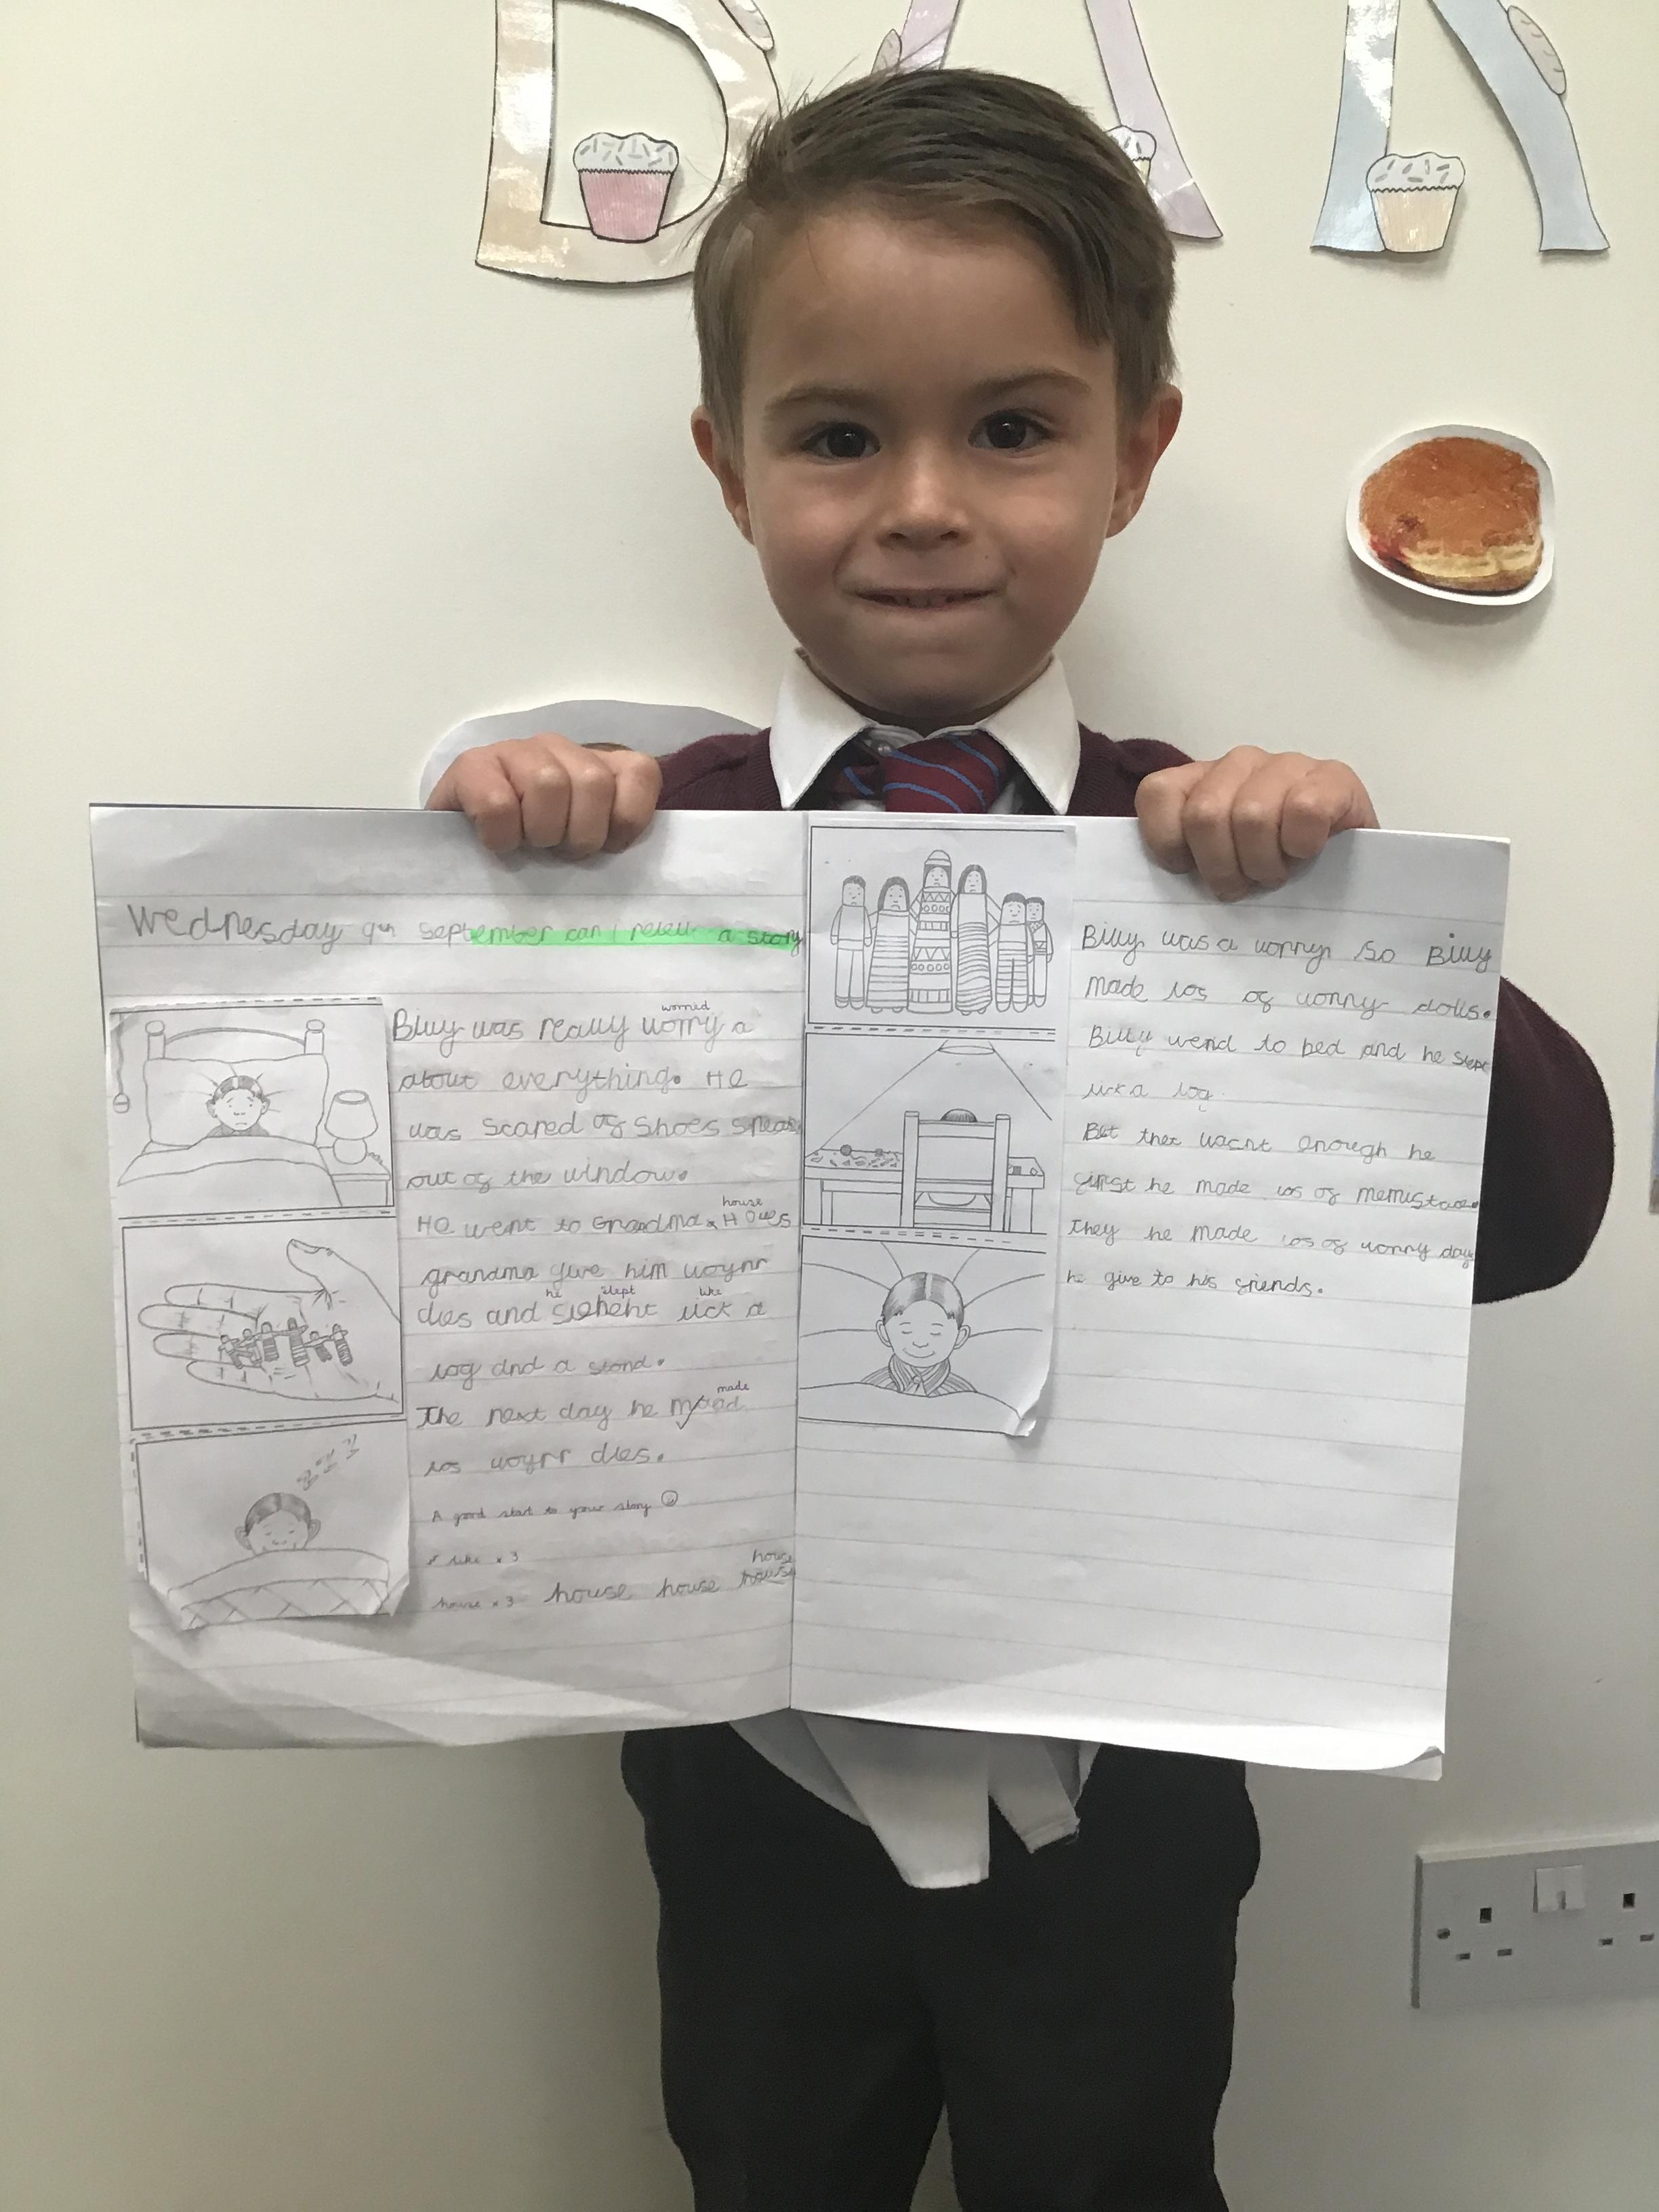 BAK
Wednesday 9th September can I retell a story
worried
Billy was really worry a
about everything. He
was scared of Shoes
out of the window.
house
He went to Grandma x Houes
grandma give him woyrr
he slept like
dles and slehent lick a
log and a stond.
made
The next day he maad
los woyrr dles.
A good start to your story
like x 3
house
house x 3 house house house
Billy was a worry so Billy
made los of worry dolls.
Billy wend to bed and he slept
lick a log.
But ther wasnt enough he
first he made los of
they he made los of worry
he give to his friends.
zzzzz